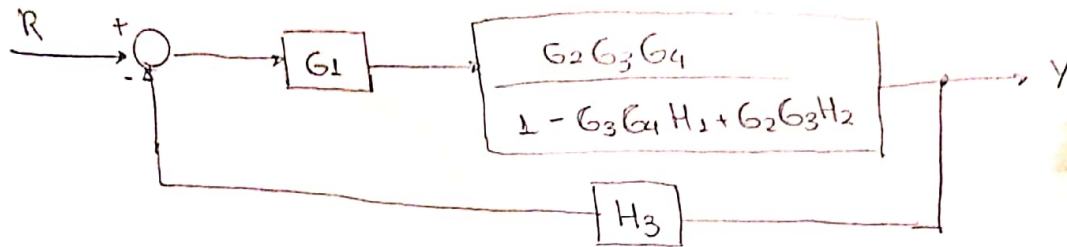 R
+
-
G1
G2G3G4
1 - G3G4H1 + G2G3H2
Y
H3